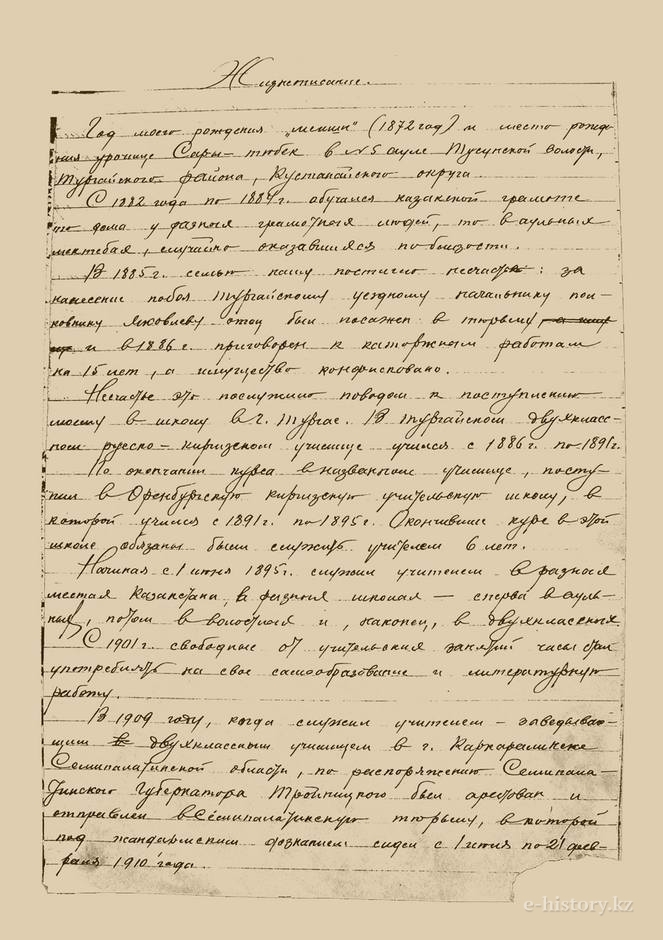 Жизнеописание.
Год моего рождения „мешин“ (1872 год) и место рожде-
ния урочище Сары-тюбек в №5 ауле Тусунской волости,
Тургайского района, Кустанайского округа.
С 1882 года по 1884г. обучался казакской грамоте
то дома у разных грамотных людей, то в аульных
мектебах, случайно оказавшихся поблизости.
В 1885г. семью нашу постигло несчастье: за
нанесение побоя Тургайскому уездному начальнику пол-
ковнику Яковлеву отец был посажен в тюрьму
и в 1886г. приговорен к каторжным работам
на 15 лет, а имущество конфисковано.
Несчастье это послужило поводом к поступлению
моему в школу в г. Тургае. В тургайском двухкласс-
ном русско-киргизском училище учился с 1886г. по 1891г.
По окончании курса в названном училище, посту-
пил в Оренбургскую киргизскую учительскую школу, в
которой учился с 1891г. по 1895г. Окончившие курс в этой
школе обязаны были служить учителем 6 лет.
Начиная с 1 июня 1895г. служил учителем в разных
местах Казакстана, в разных школах — сперва в ауль-
ных, потом в волостных и, наконец, в двухклассных.
С 1901г. свободные от учительских занятий часы стал
употреблять на свое самообразование и литературную
работу.
В 1909 году, когда служил учителем - заведываю-
щим двухклассным училищем в г. Каркаралинске
Семипалатинской области, по распоряжению Семипала-
тинского Губернатора Тройницкого был арестован и
отправлен в Семипалатинскую тюрьму, в которой
под жандармским дознанием сидел с 1 июня по 21 фев-
раля 1910 года.
e-history.kz